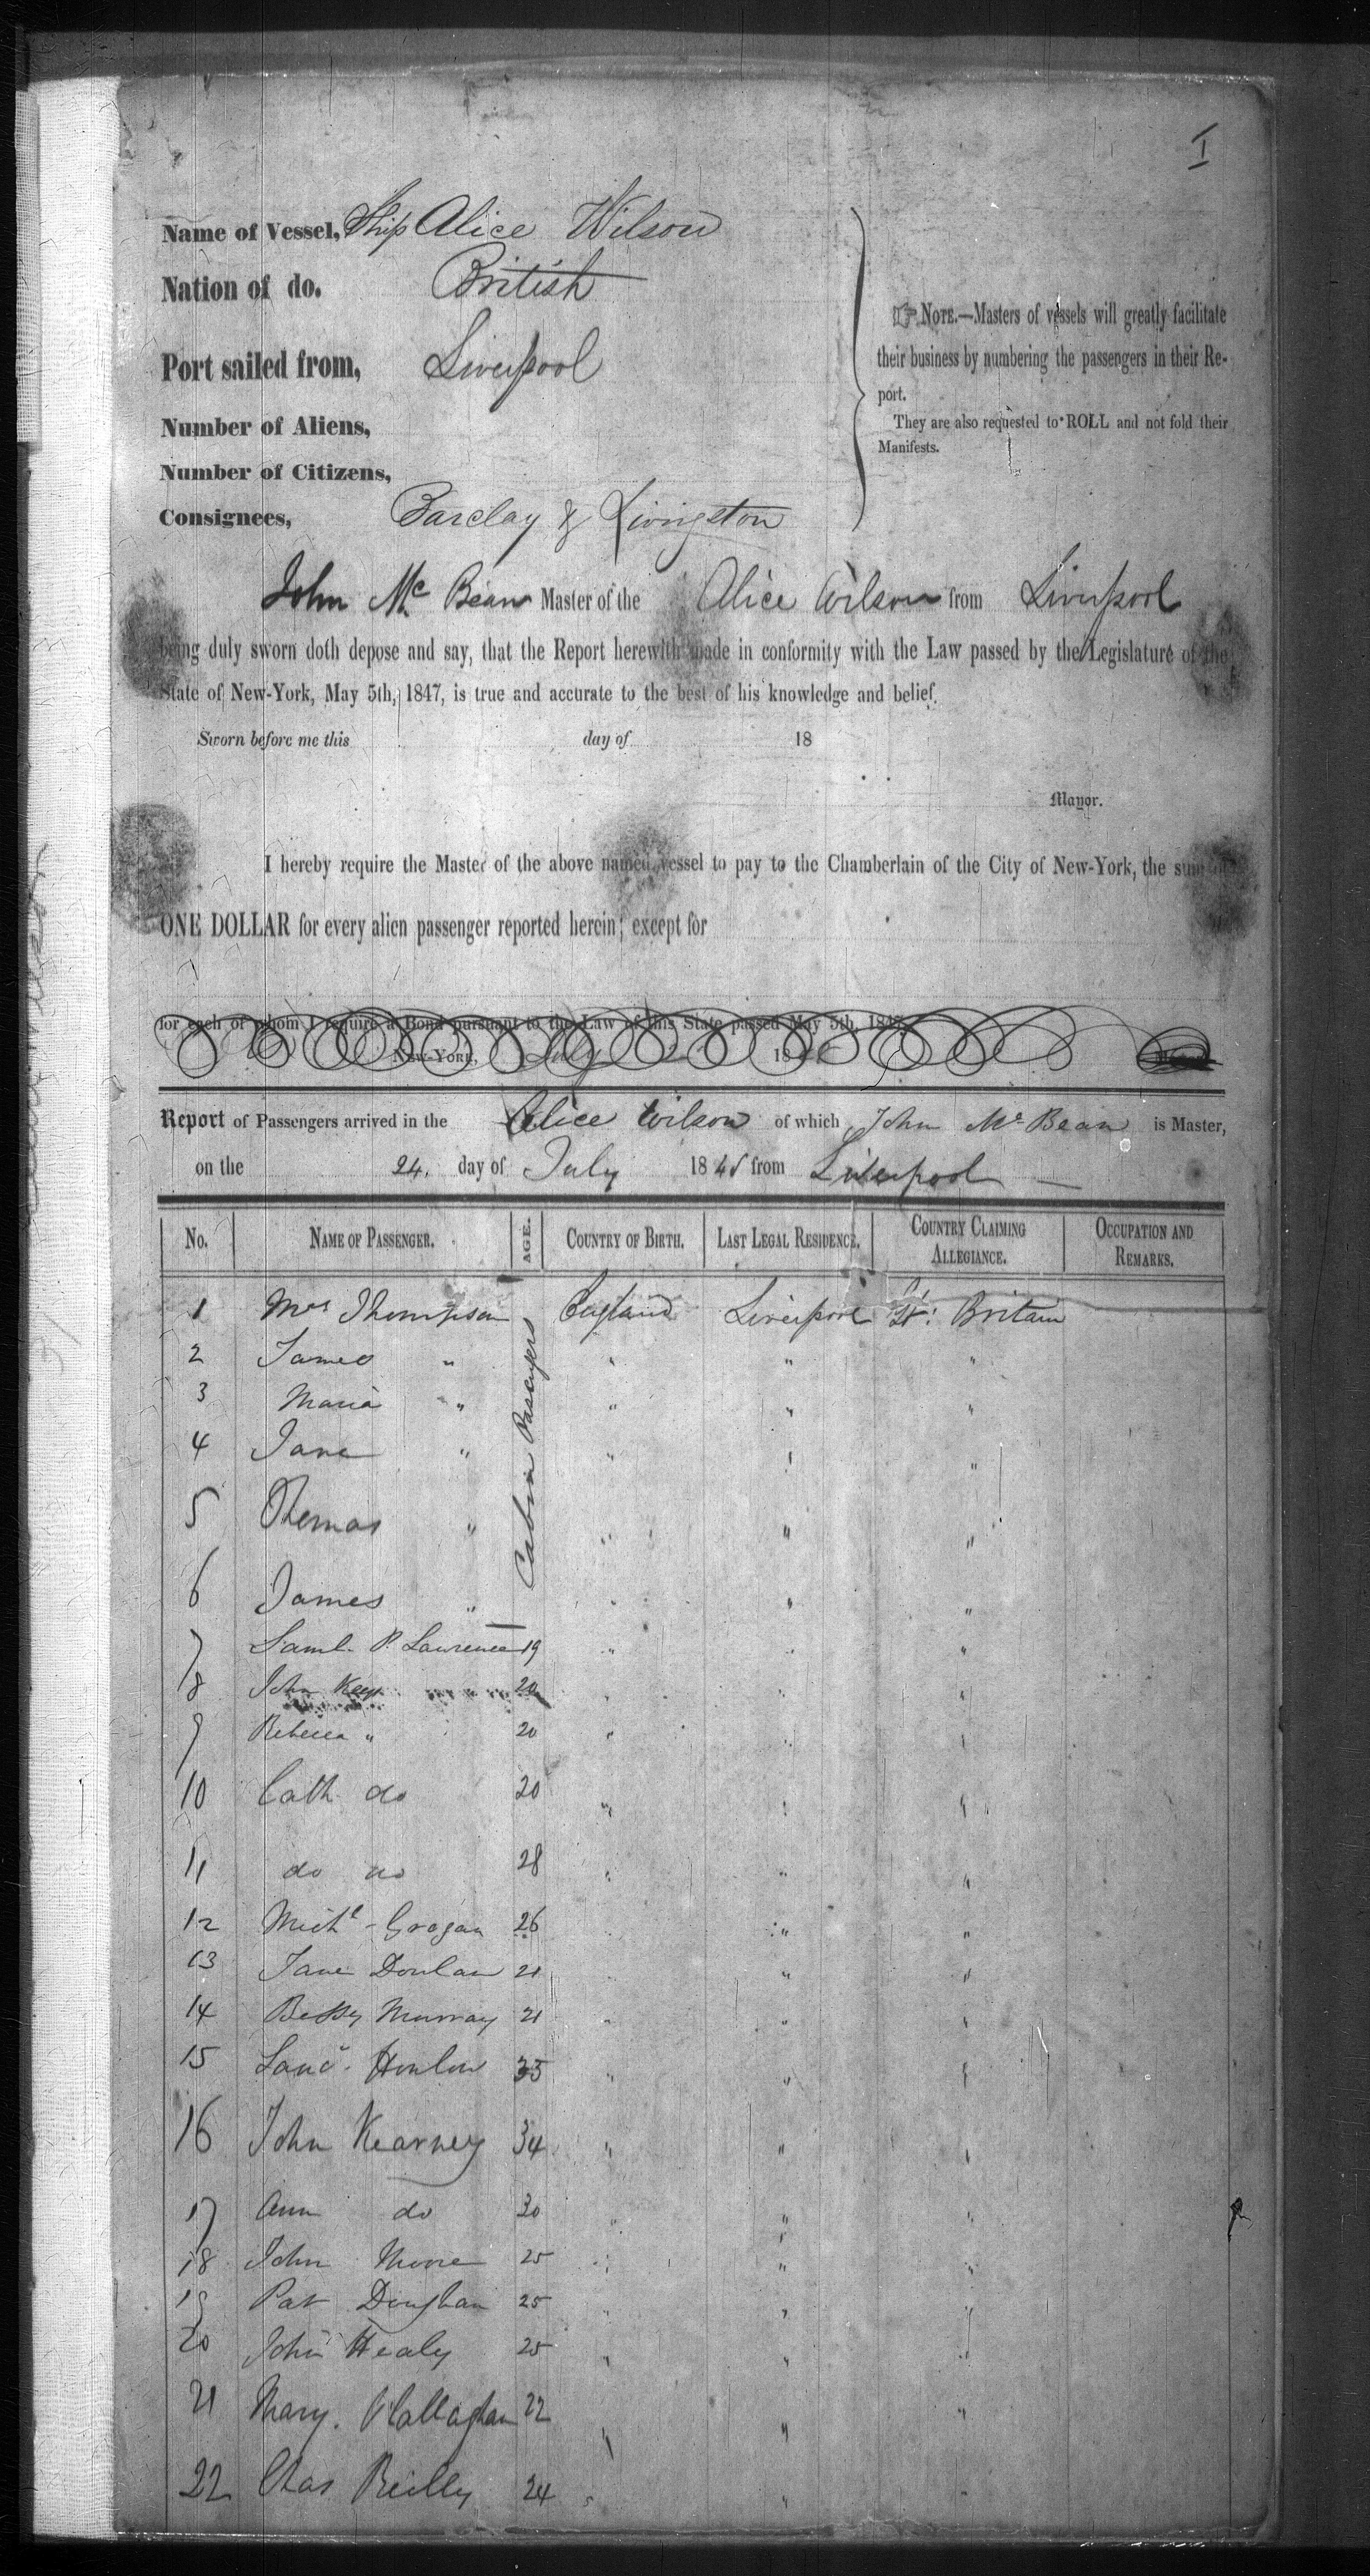 I
Name of Vessel, Ship Alice Wilson
Nation of do. British
Port sailed from, Liverpool
Number of Aliens,
Number of Citizens,
Consignees, Barclay & Livingston
☞ NOTE.—Masters of vessels will greatly facilitate
their business by numbering the passengers in their Re-
port.
They are also requested to ROLL and not fold their
Manifests.
John Mc Bean Master of the Alice Wilson from Liverpool
being duly sworn doth depose and say, that the Report herewith made in conformity with the Law passed by the Legislature of the
State of New-York, May 5th, 1847, is true and accurate to the best of his knowledge and belief.
Sworn before me this day of 18
Mayor.
I hereby require the Master of the above named vessel to pay to the Chamberlain of the City of New-York, the sum of
ONE DOLLAR for every alien passenger reported herein; except for
for each of whom I require a Bond pursuant to the Law of this State passed May 5th, 1847.
NEW-YORK, July 18
Report of Passengers arrived in the Alice Wilson of which John Mc Bean is Master,
on the 24. day of July 1848 from Liverpool
No. NAME OF PASSENGER. AGE. COUNTRY OF BIRTH. LAST LEGAL RESIDENCE. COUNTRY CLAIMING ALLEGIANCE. OCCUPATION AND REMARKS.
Cabin Passengers
1 Mrs Thompson England Liverpool Gt: Britain
2 James " " " "
3 Maria " " " "
4 Jane " " " "
5 Thomas " " " "
6 James " " " "
7 Saml. P. Lawrence 19 " " "
8 John Key 20 " " "
9 Rebecca " 20 " " "
10 Cath do 20 " " "
11 do do 28 " " "
12 Michl Grogan 26 " " "
13 Jane Donlan 21 " " "
14 Betty Murray 21 " " "
15 Hanlon 35 " " "
16 John Kearney 34 " " "
17 Ann do 30 " " "
18 John Moore 25 " " "
19 Pat 25 " " "
20 John Healy 25 " " "
21 Mary. O'Callaghan 22 " " "
22 Chas Reilly 24 " " "